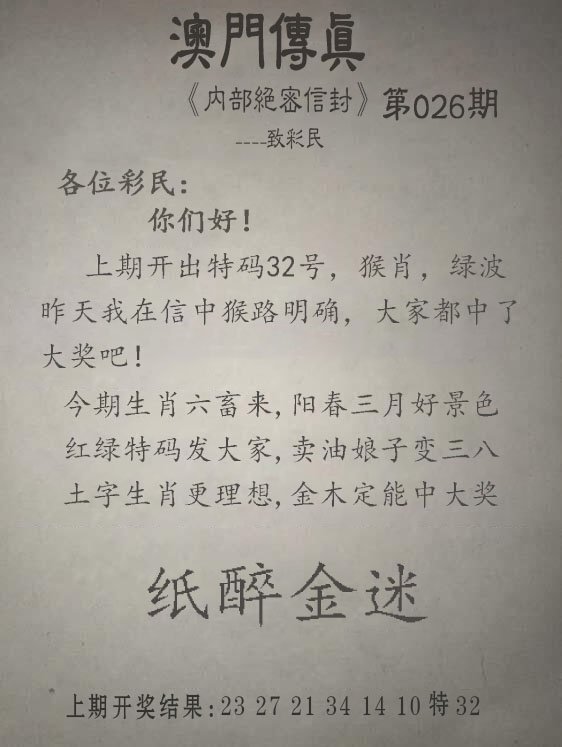 澳門傳真
《内部絕密信封》第026期
----致彩民
各位彩民：
你们好！
上期开出特码32号，猴肖，绿波
昨天我在信中猴路明确，大家都中了
大奖吧！
今期生肖六畜来,阳春三月好景色
红绿特码发大家,卖油娘子变三八
土字生肖更理想,金木定能中大奖
纸醉金迷
上期开奖结果:23 27 21 34 14 10特32